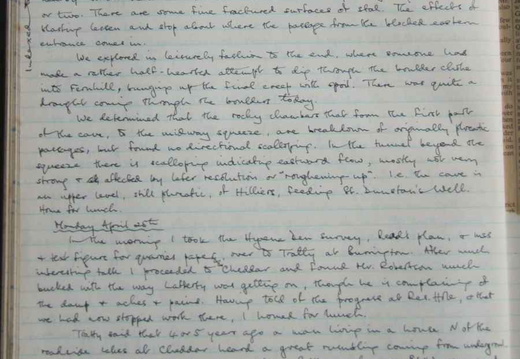 or two. There are some fine fractured surfaces of stal. The effects of
blasting lessen and stop about where the passage from the blocked eastern
entrance comes in.
We explored in leisurely fashion to the end, where someone had
made a rather half-hearted attempt to dig through the boulder choke
into Fernhill, bunging up the final creep with spoil. There was quite a
draught coming through the boulders today.
We determined that the rocky chambers that form the first part
of the cave, to the midway squeeze, are breakdown of originally phreatic
passages, but found no directional scalloping. In the tunnel beyond the
squeeze there is scalloping indicating eastward flow, mostly not very
strong & affected by later resolution or "roughening up". I.e. the cave is
an upper level, still phreatic, of Hilliers, feeding St. Dunstan's Well.
Home for lunch.
Monday April 25th
In the morning I took the Hyaena Den Survey, Redd's plan, &
& text figure for quarries paper, over to Tratty at Burrington. After much
interesting talk I proceeded to Cheddar and found Mr. Robertson much
bucked with the way Lafferty was getting on, though he is complaining of
the damp & aches & pains. Having told of the progress at Res. Hole, & that
we had now stopped work there, I homed for lunch.
Tratty said that 4 or 5 years ago a man living in a house N of the
roadside lakes at Cheddar heard a great rumbling coming from